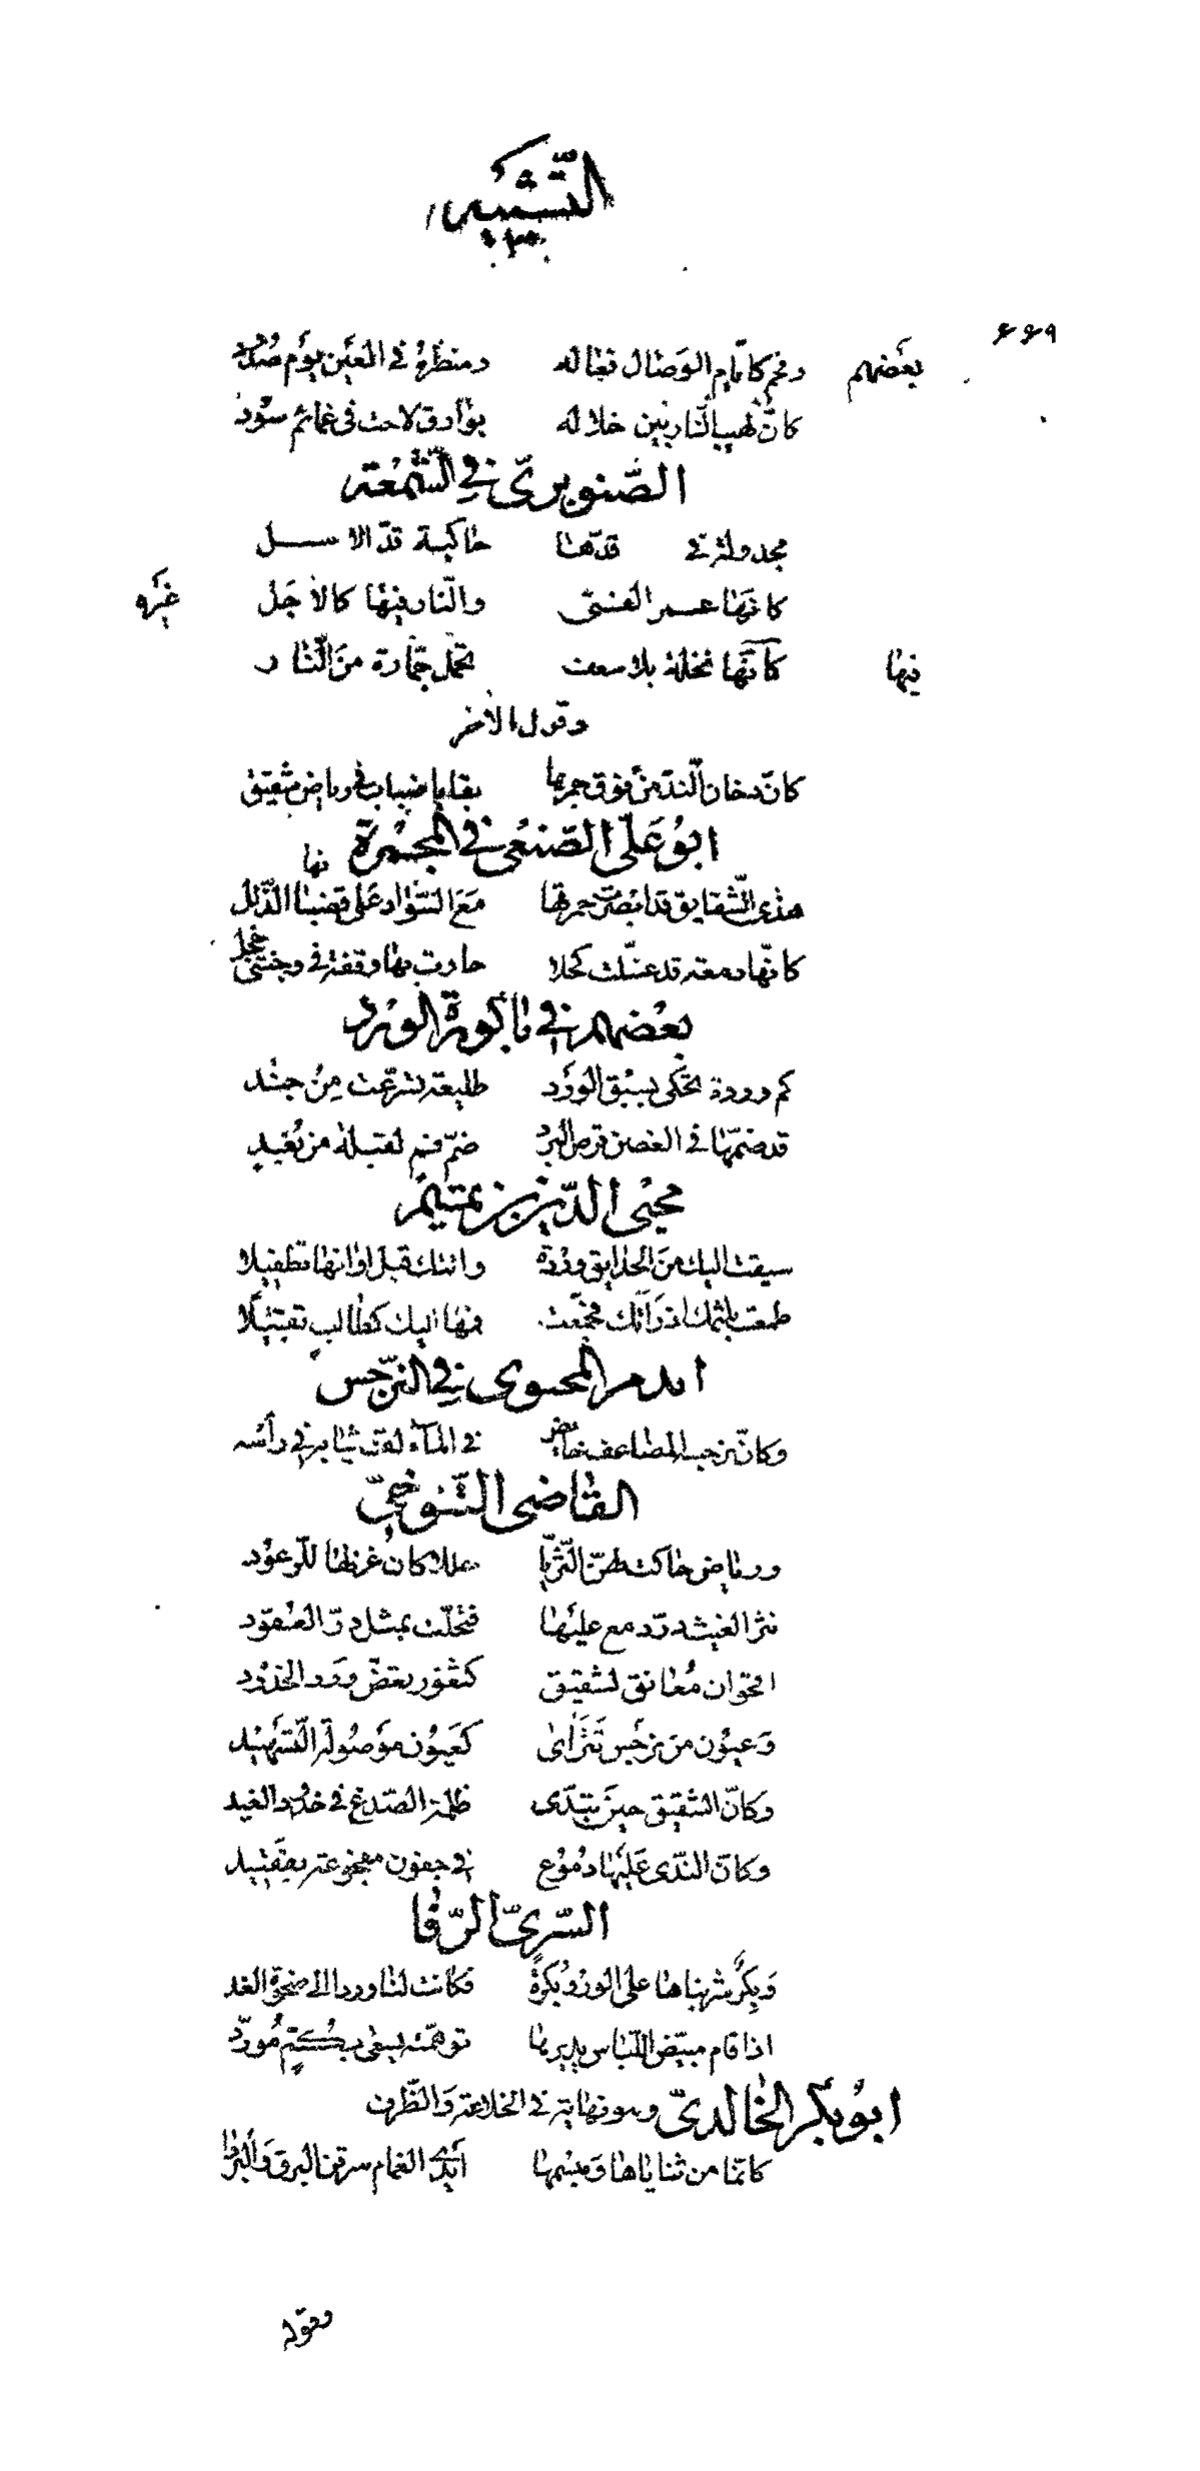 التشبيه
٤٤٩
بعضهم وفحم كايام الوصال فعاله ومنظره في العين يوم صدود
كان لهيب النار بين خلاله بوارق لاحت في غمائم سود
الصنوبري في الشمعة
مجدولة في قدها حاكية قد الاسل
كانها عمر الفتى والنار فيها كالاجل غيره
فيها كانها نخلة بلا سعف تحمل جمارة من النار
وقول الاخر
كان دخان الند من فوق جمرها بقايا ضباب في رياض شقيق
ابو علي الصنعي في المجمرة
هذي الشقايق قد ابصرت حمرتها مع السواد على قضبانها الذلل
كانها دمعة قد غسلت كحلا جادت بها وقفة في وجنتي خجل
بعضهم في باكورة الورد
كم وردة تحكي بسبق الورد طليعة تسرعت من جند
قد ضمها في الغصن قرص البرد ضم فم لقبلة من بعيد
محيي الدين بن تميم
سيقت اليك من الحدايق وردة واتتك قبل اوانها تطفيلا
طمعت بلثمك اذ راتك فجمعت فمها اليك كطالب تقبيلا
ايدمر المحيوي في النرجس
وكان نرجسه المضاعف خائض في الماء لف ثيابه في رأسه
القاضي التنوخي
ورياض حاكت لهن الثريا حللا كان غزلها للرعود
نثر الغيث در دمع عليها فتحلت بمثل در العقود
اقحوان معانق لشقيق كثغور تعض ورد الخدود
وعيون من نرجس تتراءى كعيون موصولة التسهيد
وكان الشقيق حين تبدى ظلمة الصدغ في خدود الغيد
وكان الندى عليها دموع في جفون مفجوعة بفقيد
السري الرفا
وبكر شربناها على الورد بكرة فكانت لنا وردا الى ضحوة الغد
اذا قام مبيض اللباس يديرها توهمته يسعى بكم مورد
ابو بكر الخالدي وهو نهاية في الخلاعة والظرف
كانما من ثناياها ومبسمها ايدي الغمام سرقن البرق والبردا
وقوله